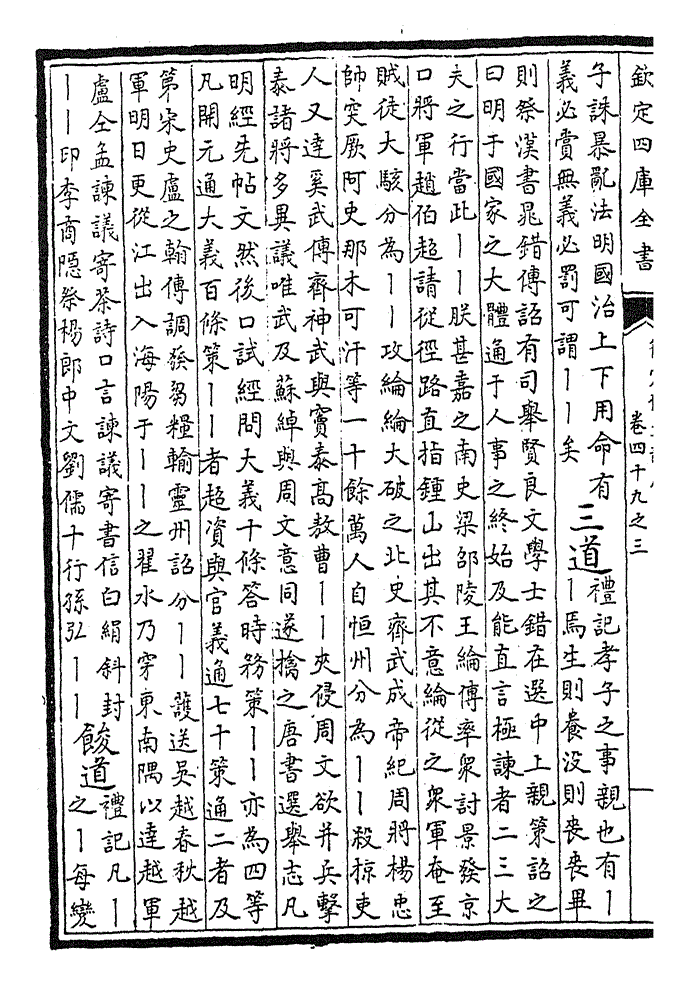 欽定四庫全書
卷四十九之三
子誅暴亂法明國治上下用命有
義必賞無義必罰可謂——矣
三道
禮記孝子之事親也有—
—焉生則養没則喪喪畢
則祭漢書晁錯傳詔有司舉賢良文學士錯在選中上親策詔之
曰明于國家之大體通于人事之終始及能直言極諫者二三大
夫之行當此——朕甚嘉之南史梁邵陵王綸傳率衆討景發京
口將軍趙伯超請從徑路直指鍾山出其不意綸從之衆軍奄至
賊徒大駭分為——攻綸綸大破之北史齊武成帝紀周將楊忠
帥突厥阿史那木可汗等一十餘萬人自恒州分為——殺掠吏
人又達奚武傳齊神武與竇泰高敖曹——夾侵周文欲并兵擊
泰諸將多異議唯武及蘇綽與周文意同遂擒之唐書選舉志凡
明經先帖文然後口試經問大義十條答時務策——亦為四等
凡開元通大義百條策——者超資與官義通七十策通二者及
第宋史盧之翰傳調發芻糧輸靈州詔分——護送吳越春秋越
軍明日更從江出入海陽于——之翟水乃穿東南隅以達越軍
盧仝孟諫議寄茶詩口言諫議寄書信白絹斜封
——印李商隱祭楊郎中文劉儒十行孫弘——
餕道
禮記凡—
之—每變